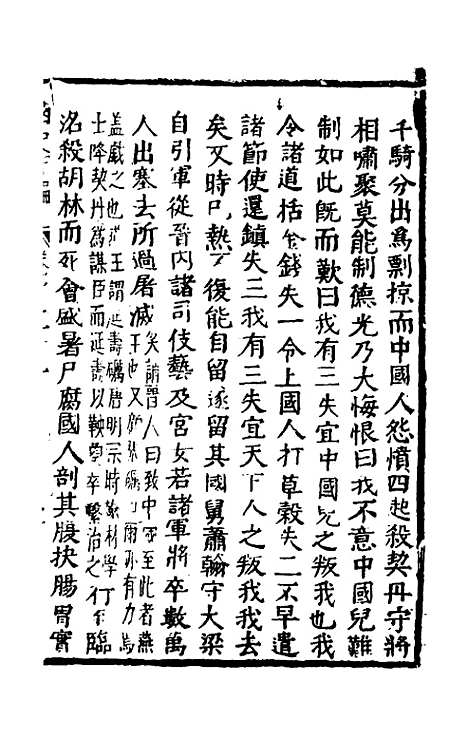 千騎分出爲剽掠而中國人怨憤四起殺契丹守將
相嘯聚莫能制德光乃大悔恨曰我不意中國兒難
制如此旣而歎曰我有三失宜中國兒之叛我也我
令諸道括金錢失一令上國人打草穀失二不早遣
諸節使還鎮失三我有三失宜天下人之叛我我去
矣又時已熱 復能自留遂留其國舅蕭翰守大梁
自引軍從晉內諸司伎藝及宮女若諸軍將卒數萬
人出塞去所過屠滅
矣謂晉人曰致中國至此者燕
王也又 爾亦有力焉
蓋戲之也 王謂延壽礪唐明宗時 林學
士降契丹爲謀臣而延壽以鞅 卒繫治之行至臨
洺殺胡林而死會盛暑尸腐國人剖其腹抉腸胃實